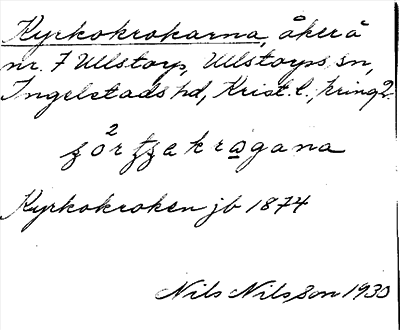 Kyrkokrokarna, åker å
nr. 7 Ullstorp, Ullstorps sn,
Ingelstads hd, Krist. l.,
Kyrkokroken jb 1874
Nils Nilsson 1930